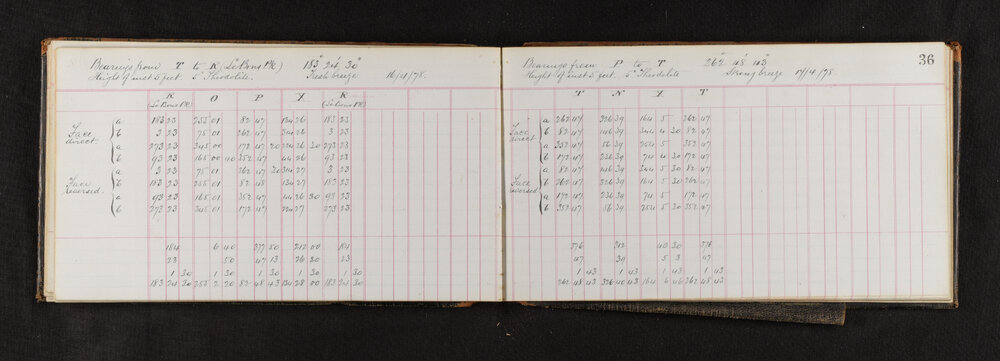 Bearings from T to K (Le Bons Pk) 183° 24' 30"
Height of inst 5 feet. 5" Theodolite. Fresh breeze 16/4/78.
K O P X K
(Le Bons Pk) (Le Bons Pk)
a 183 23 255 01 82 47 134 26 183 23
Face direct.
b 3 23 75 01 262 47 314 26 3 23
a 273 23 345 00 172 47 20 224 26 30 273 23
b 93 23 165 00 40 352 47 44 26 93 23
a 3 23 75 01 262 47 30 314 27 3 23
Face reversed.
b 183 23 255 01 82 48 134 27 183 23
a 93 23 165 01 352 47 44 26 30 93 23
b 273 23 345 01 172 47 224 27 273 23
184 6 40 377 50 212 00 184
23 50 47 13 26 30 23
1 30 1 30 1 30 1 30 1 30
183 24 30 255 2 20 82 48 43 134 28 00 183 24 30
36
Bearings from P to T 262° 48' 43"
Height of inst 5 feet. 5" Theodolite Strong breeze 17/4/78.
T N X T
a 262 47 326 39 164 5 262 47
Face direct
b 82 47 146 39 344 4 30 82 47
a 352 47 56 39 254 5 352 47
b 172 47 236 39 74 4 30 172 47
a 82 47 146 39 344 5 30 82 47
Face reversed.
b 262 47 326 39 164 5 30 262 47
a 172 47 236 39 74 5 172 47
b 352 47 56 39 254 5 30 352 47
376 312 40 30 376
47 39 5 3 47
1 43 1 43 1 43 1 43
262 48 43 326 40 43 164 6 46 262 48 43